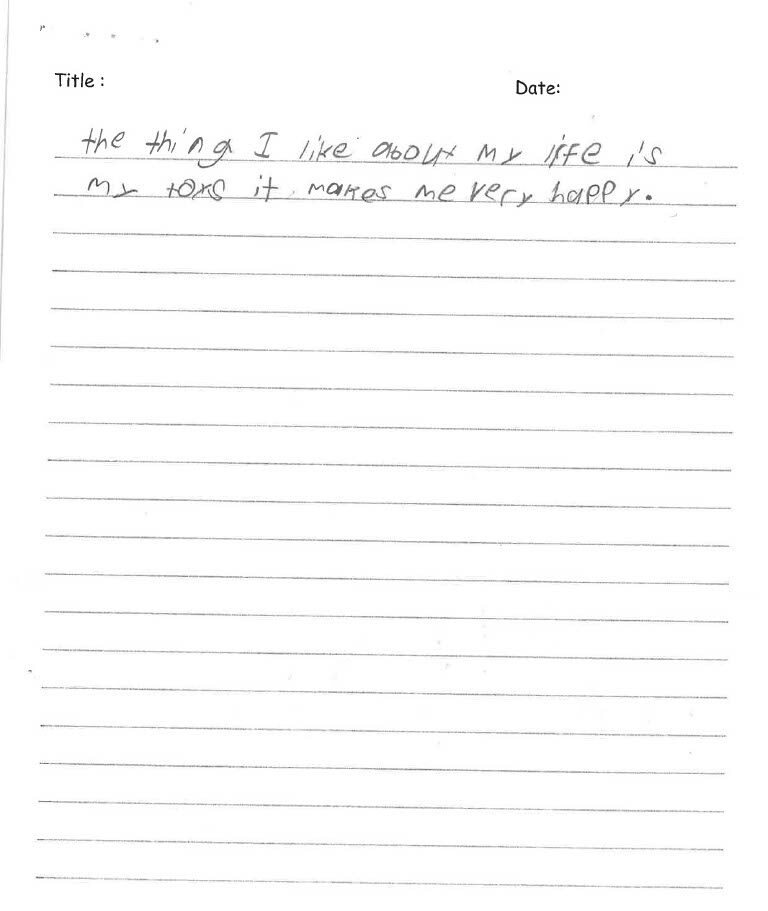 Title :
Date:
the thing I like about my life is
my toys it makes me very happy.